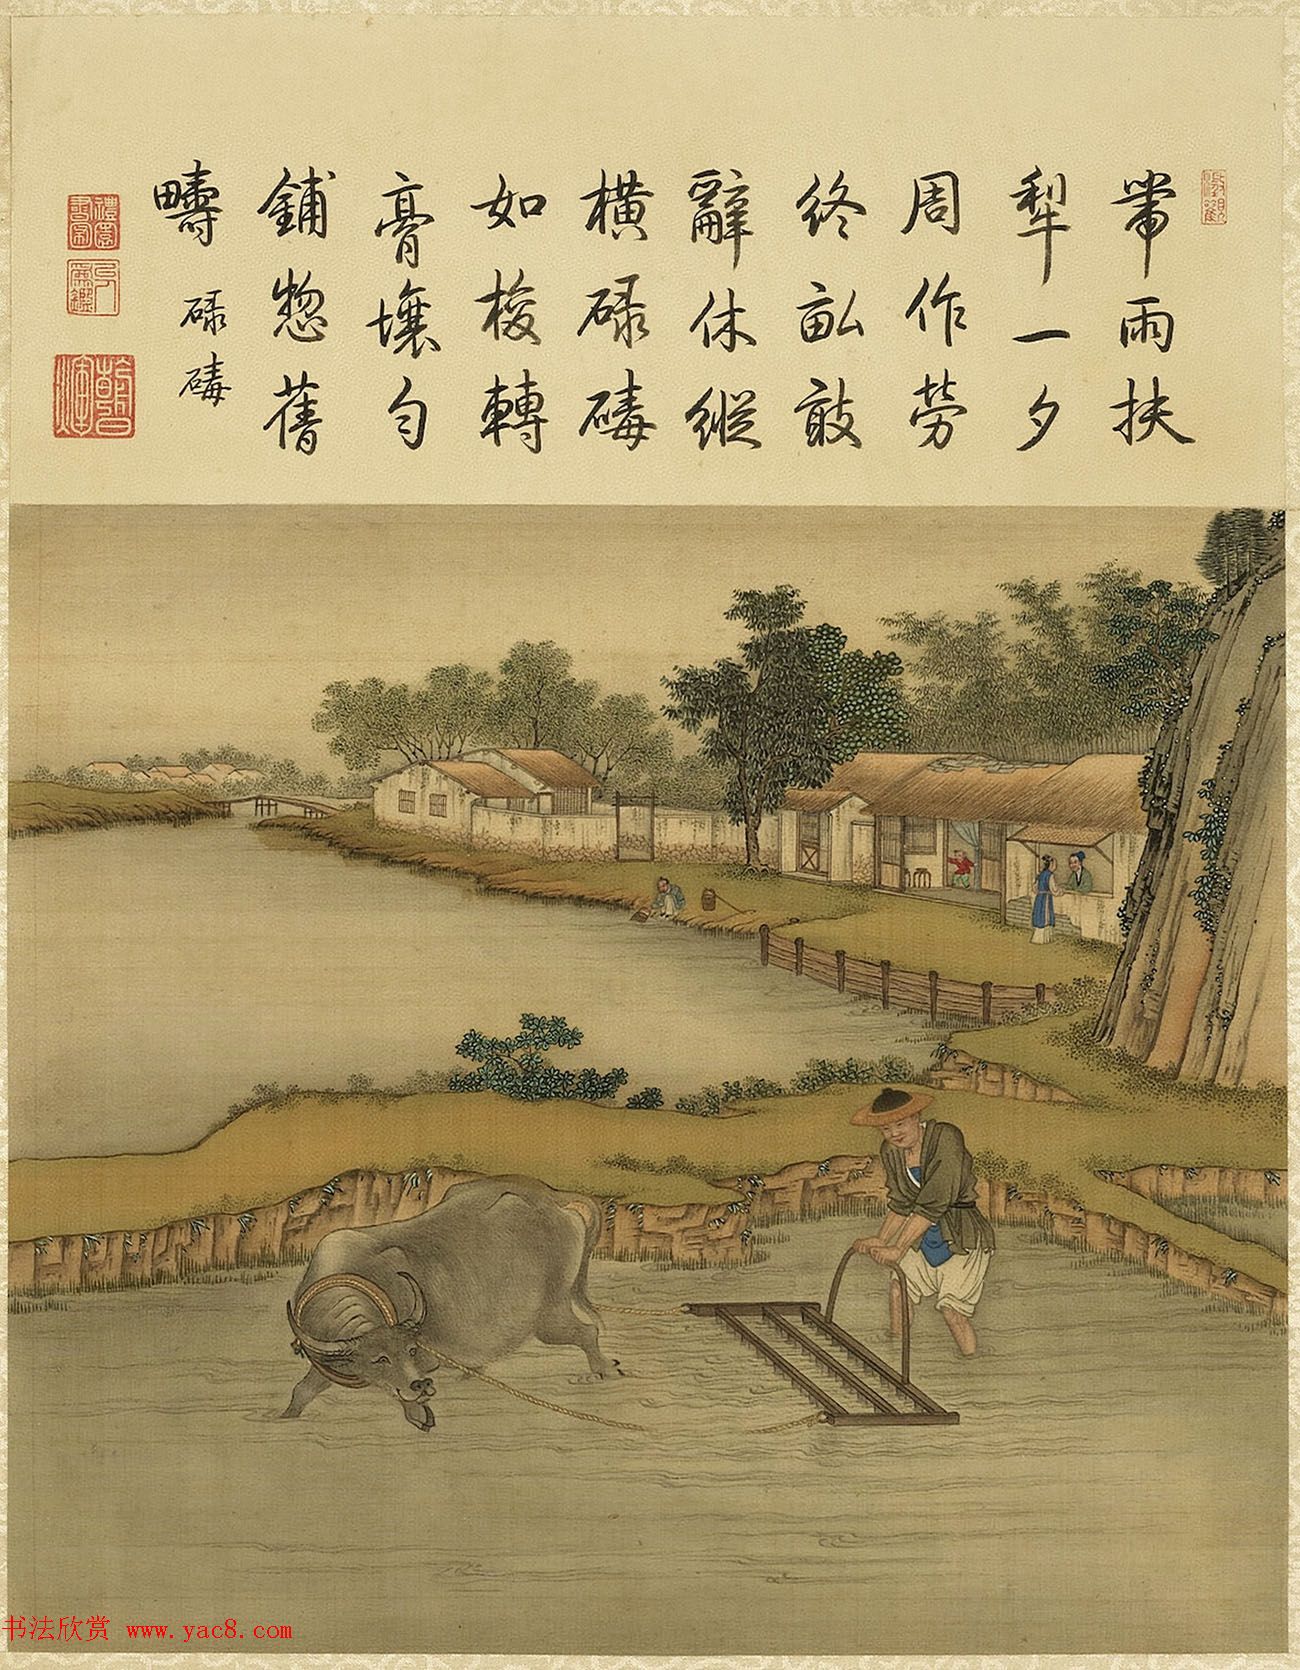 帶雨扶
犁一夕
周作勞
終畝敢
辭休縱
橫碌碡
如梭轉
膏壤勻
鋪惣舊
疇 碌碡
书法欣赏 www.yac8.com